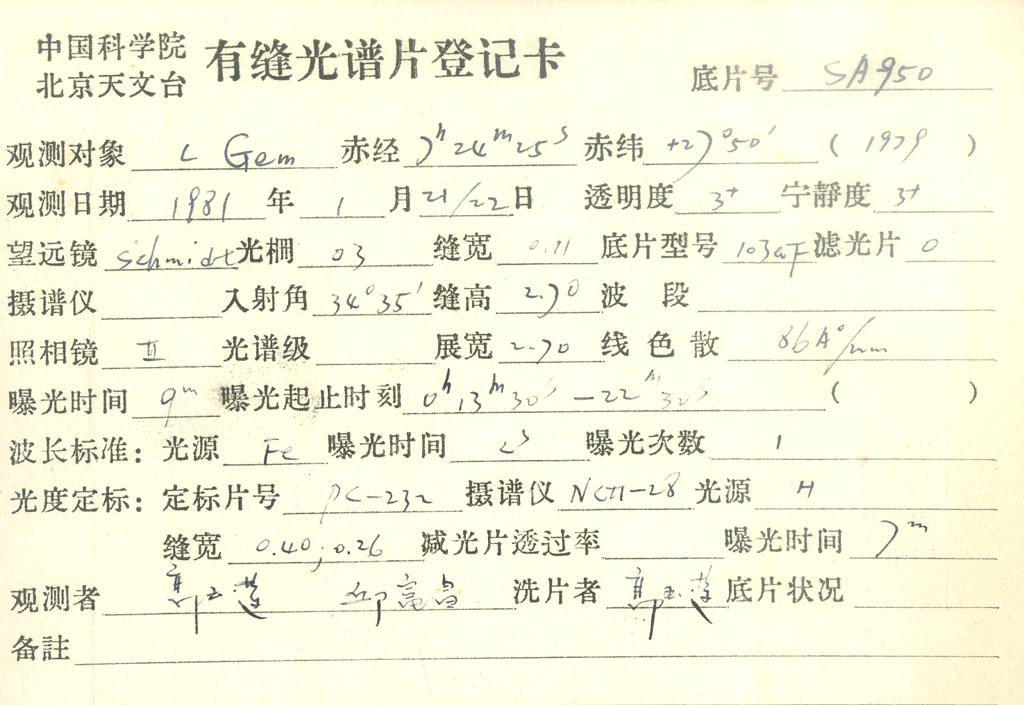 中国科学院
北京天文台
有缝光谱片登记卡
底片号 SA950
观测对象 ι Gem 赤经 7h 24m 25s 赤纬 +27°50′ ( 1979 )
观测日期 1981 年 1 月 21/22 日 透明度 3+ 宁静度 3+
望远镜 Schmidt 光栅 03 缝宽 0.11 底片型号 103aF 滤光片 0
摄谱仪 入射角 34°35′ 缝高 2.70 波 段
照相镜 II 光谱级 展宽 2.70 线色散 86A°/mm
曝光时间 9m 曝光起止时刻 0h 13m 30s —22m 30s ( )
波长标准: 光源 Fe 曝光时间 2s 曝光次数 1
光度定标: 定标片号 PC-232 摄谱仪 光源 H
缝宽 0.40; 0.26 减光片透过率 曝光时间 7m
观测者 邱富昌 洗片者 底片状况
备註